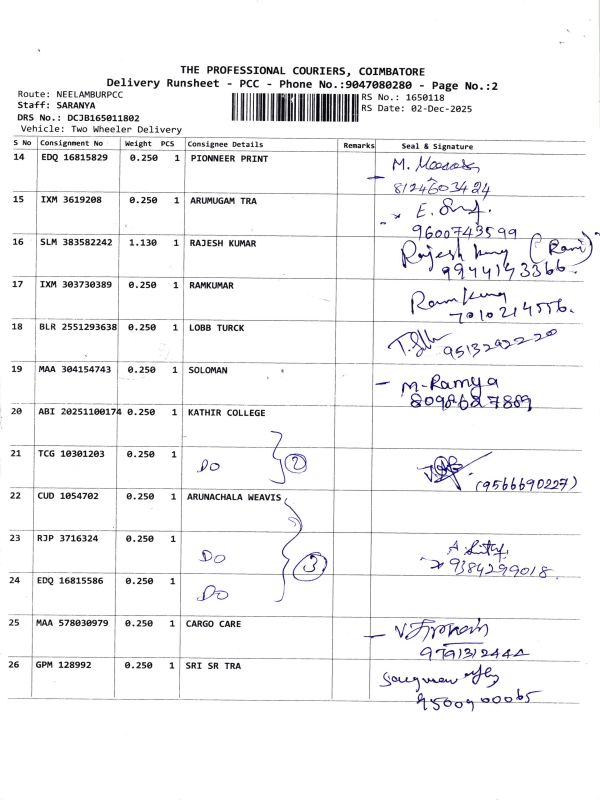 THE PROFESSIONAL COURIERS, COIMBATORE
Delivery Runsheet - PCC - Phone No.:9047080280 - Page No.:2
Route: NEELAMBURPCC
RS No.: 1650118
Staff: SARANYA
RS Date: 02-Dec-2025
DRS No.: DCJB165011802
Vehicle: Two Wheeler Delivery
S No Consignment No Weight PCS Consignee Details Remarks Seal & Signature
14 EDQ 16815829 0.250 1 PIONNEER PRINT M.
8124603424
15 IXM 3619208 0.250 1 ARUMUGAM TRA E.
9600743599
16 SLM 383582242 1.130 1 RAJESH KUMAR Rajesh kumar (Rani)
9944143366.
17 IXM 303730389 0.250 1 RAMKUMAR Ramkumar
7010214556.
18 BLR 2551293638 0.250 1 LOBB TURCK 9513292220
19 MAA 304154743 0.250 1 SOLOMAN - M-Ramya
8098627889
20 ABI 20251100174 0.250 1 KATHIR COLLEGE
21 TCG 10301203 0.250 1 DO 2
(9566690227)
22 CUD 1054702 0.250 1 ARUNACHALA WEAVIS
23 RJP 3716324 0.250 1 DO 3 A
9384299018.
24 EDQ 16815586 0.250 1 DO
25 MAA 578030979 0.250 1 CARGO CARE
9791312444
26 GPM 128992 0.250 1 SRI SR TRA
9500900065